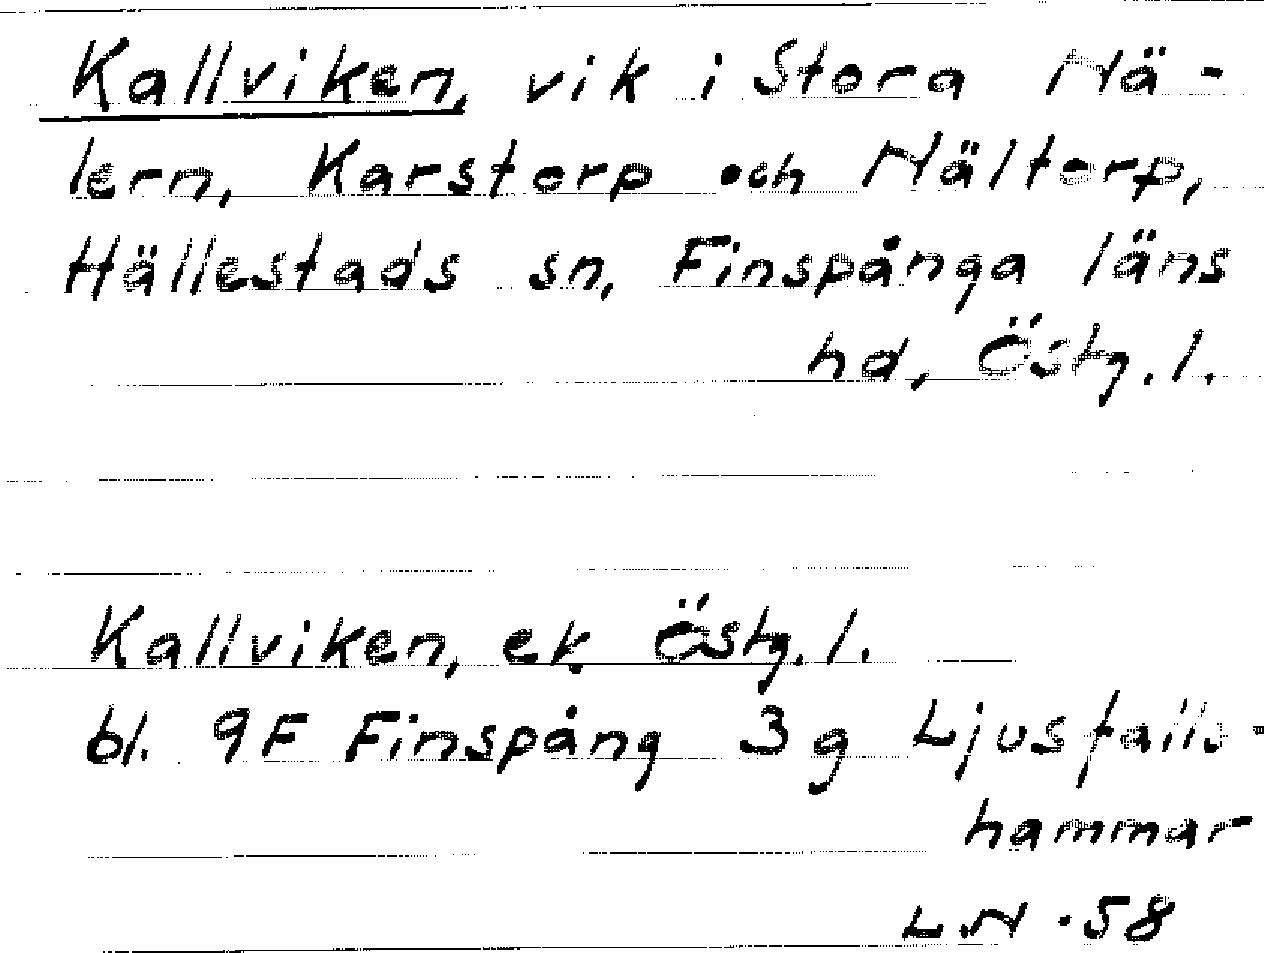 Kallviken, vik i Stora Nä-
lern, Karstorp och Nältorp,
Hällestads sn, Finspånga läns
hd, Östg. l.
Kallviken, ek. Östg. l.
bl. 9F Finspång 3g Ljusfalls-
hammar
L.N. 58